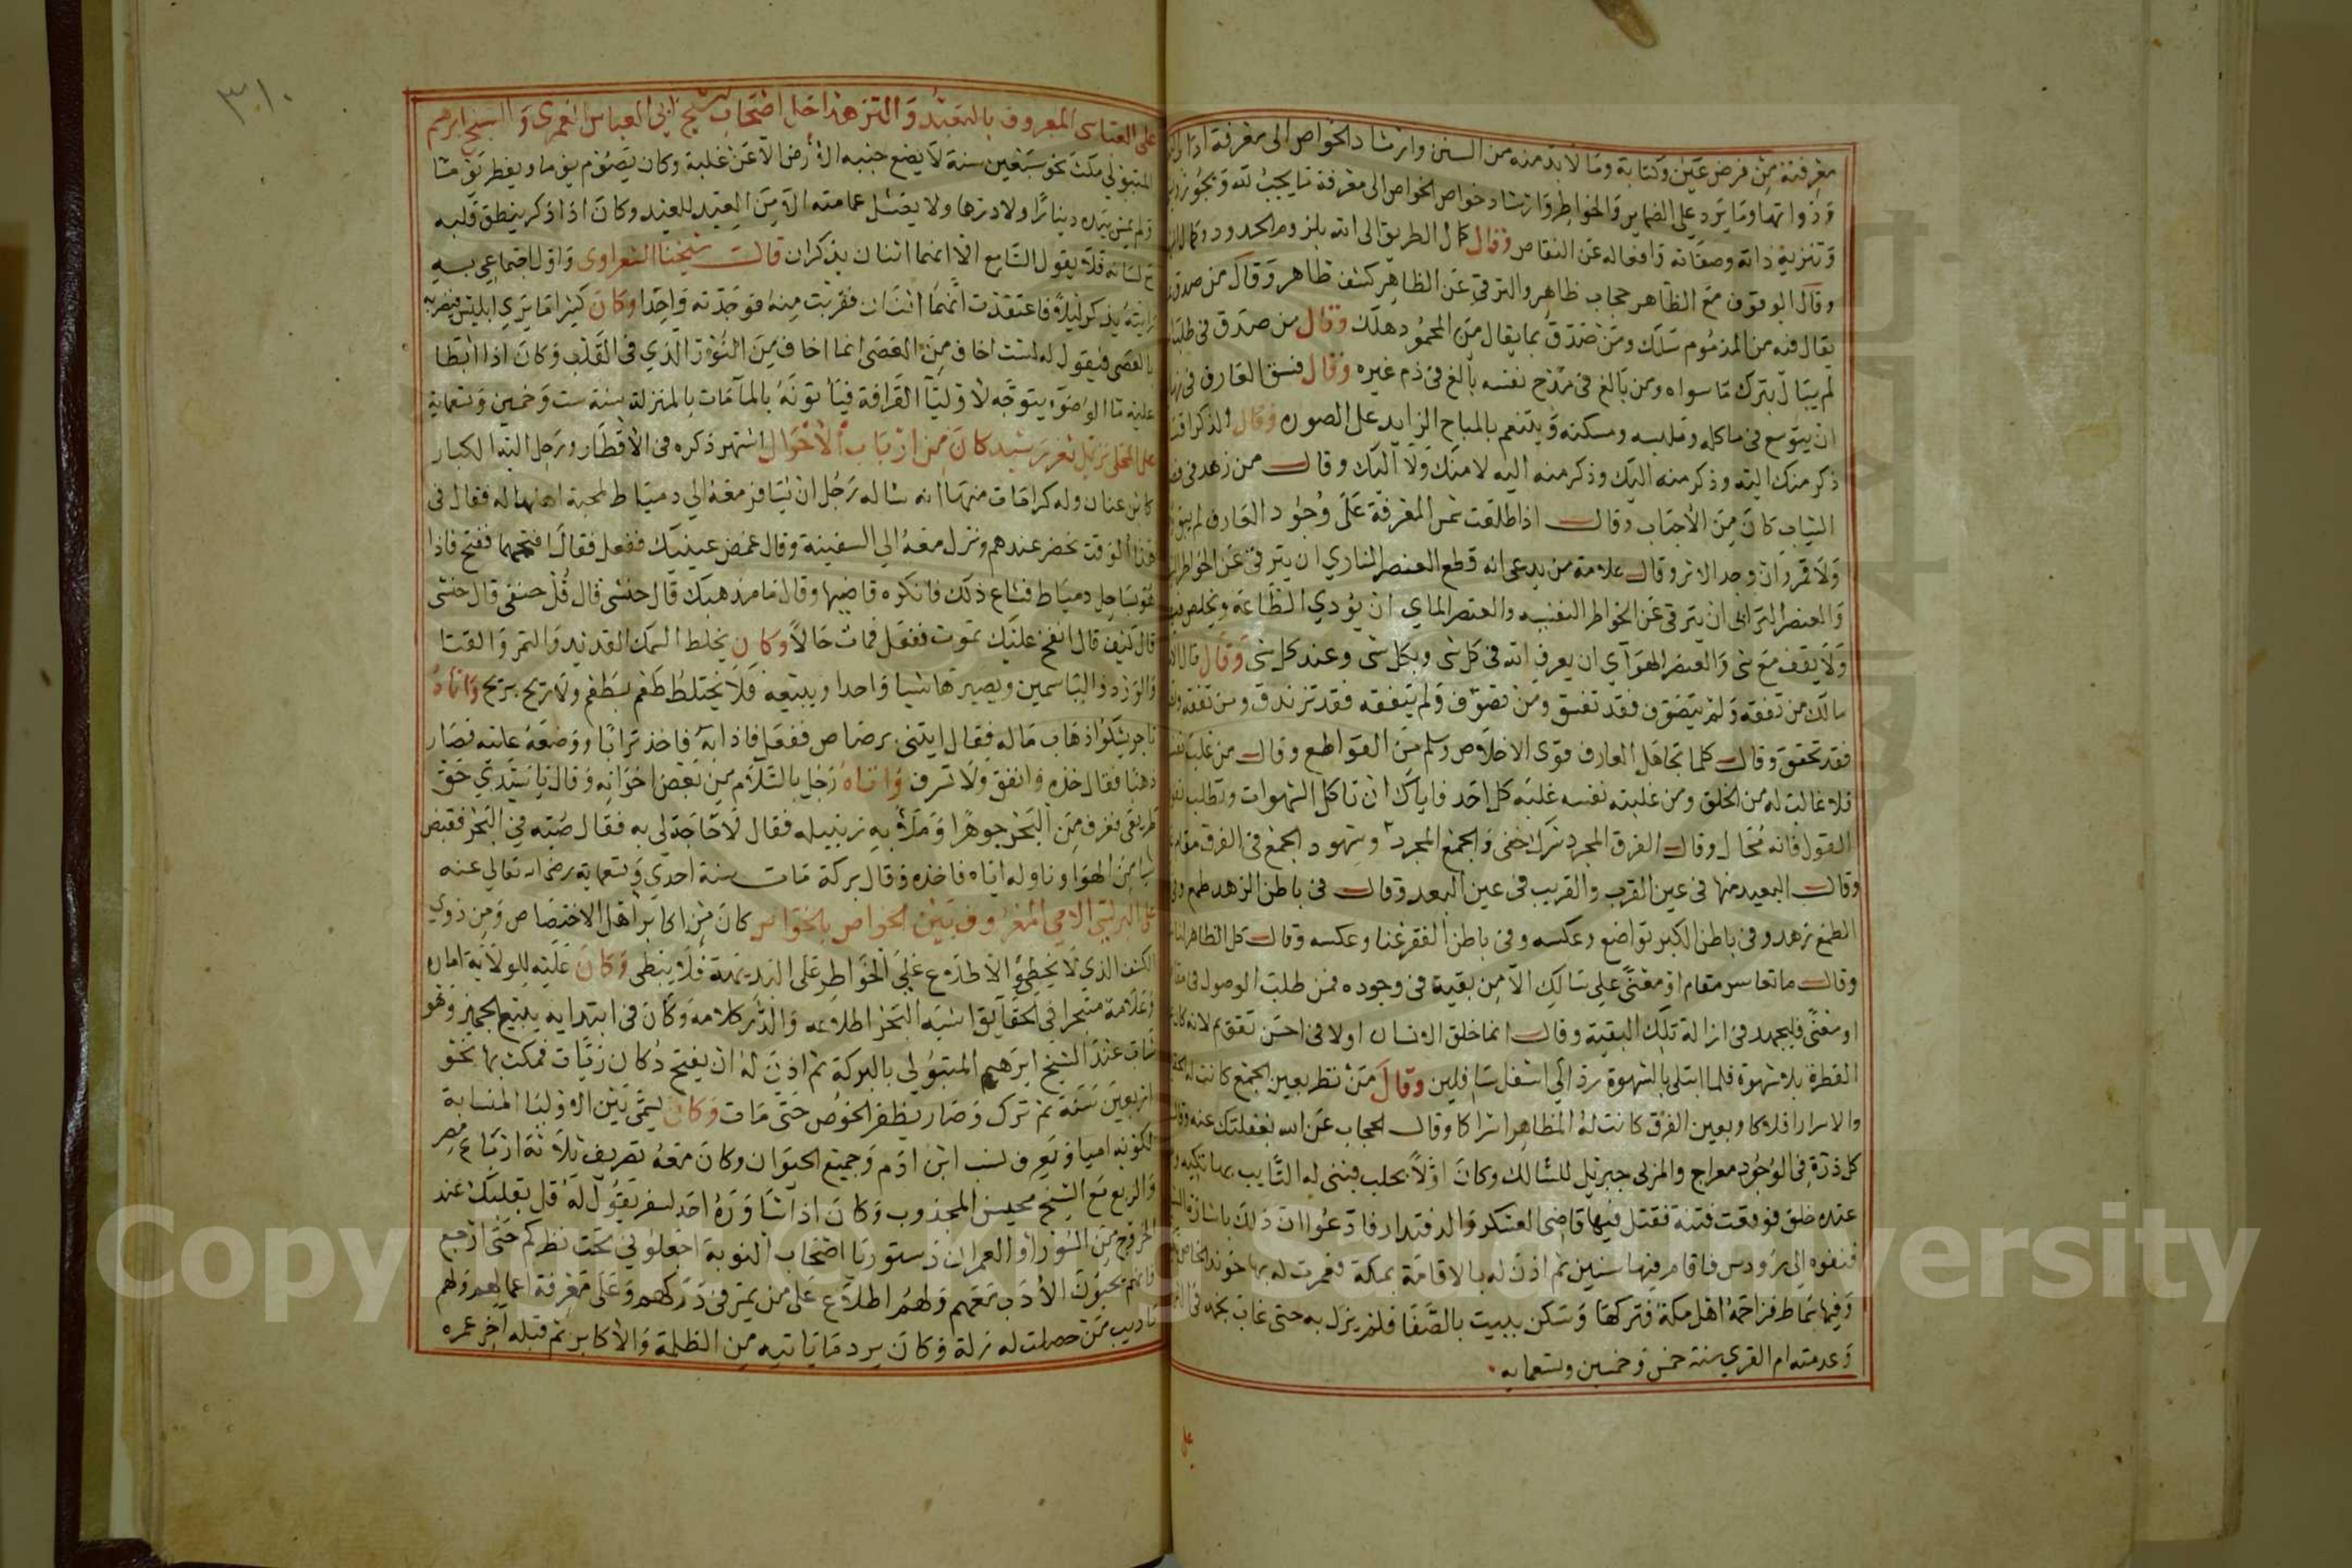 معرفته من فرض عين وكتابة وما لابد منه من السنن وارشاد الخواص الى معرفة
وذواتها وما يرد على الضماير والخواطر وارشاد خواص الخواص الى معرفة ما يجب لله ويجوز
وتنزيه ذاته وصفاته وافعاله عن النقاص وقال كمال الطريق الى الله بلزوم الحدود وكمال
وقال الوقوف مع الظاهر حجاب ظاهر والترقي عن الظاهر كشف ظاهر وقال من صدق
يقال فيه من المذموم سلك ومن صدق بما يقال من المحمود هلك وقال من صدق في طلب
لم يبال بترك ما سواه ومن بالغ في مدح نفسه بالغ في ذم غيره وقال فسق العارف في
ان يتوسع في ماكله وملبسه ومسكنه ويتنعم بالمباح الزايد على الصوره وقال الذكر
ذكر منك اليه وذكر منه اليك وذكر منه اليه لا منك ولا اليك وقال من زهد في
الثياب كان من الاجناب وقال اذا طلعت شمس المعرفة على وجود العارف لم يبق
ولا قمر وان وجد الاثر وقال علامة من يدعى انه قطع العنصر الناري ان يترقى عن الخواطر
والعنصر الترابى ان يترقى عن الخواطر النفسيه والعنصر الماي ان يؤدي الطاعة ويخلص
ولا يقف مع شى والعنصر الهوآي ان يعرف الله فى كل شى وبكل شى وعند كل شى وقال قال
مالك من تفقه ولم يتصوف فقد تفسق ومن تصوف ولم يتفقه فقد تزندق ومن تفقه
فقد تحقق وقال كلما تجاهل العارف قوى الاخلاص وسلم من القواطع وقال من غلب
فلا غالب له من الخلق ومن غلبته نفسه غلبه كل احد فاياك ان تاكل الشهوات وتطلب
القول فانه محال وقال الفرق المجرد شرك خفى والجمع المجرد وشهود الجمع فى الفرق
وقال البعيد منها فى عين القرب والقريب فى عين البعد وقال فى باطن الزهد طمع وفى
الطمع زهد وفى باطن الكبر تواضع وعكسه وفى باطن الفقر غنا وعكسه وقال كل الظاهر
وقال ما تعاسر مقام او معنى على سالك الا من بقية فى وجوده فمن طلب الوصول
او معنى فليجهد فى ازالة تلك البقية وقال انما خلق الانسان اولا فى احسن تقويم لانه كان
الفطرة بلا شهوة فلما ابتلى بالشهوة رد الى اسفل سافلين وقال من نظر بعين الجمع كانت له
والاسرار افلاكا وبعين الفرق كانت له المظاهر اشراكا وقال الحجاب عن الله بغفلتك عنه
كل ذرة فى الوجود معراج والمربى جبريل للسالك وكان اولا بحلب فبنى له النايب بها تكيه
عنده خلق فوقعت فتنة فقتل فيها قاضى العسكر والدفتدار فادعوا ان ذلك باشارة
فنفوه الى رودس فاقام فيها سنين ثم اذن له بالاقامة بمكة فعمرت له بها خوند
وفيها بماط فزاحمه اهل مكة فتركها وسكن ببيت بالصفا فلم يزل به حتى غاب نجمه
وعدمته ام القرى سنة خمس وخمسين وتسعمايه
على
٣١٠
على العباس المعروف بالتعبد والتزهد اجل اصحاب الشيخ ابى العباس الغمرى والشيخ ابرهيم
المتبولي مكث نحو سبعين سنة لا يضع جنبه الارض الا عن غلبة وكان يصوم يوما ويفطر يوما
ولم يمس بيده دينارا ولا درهما ولا يغسل عمامته الا من العيد للعيد وكان اذا ذكر ينطق قلبه
مع لسانه فلا يقول السامع الا انهما اثنان يذكران قال شيخنا الشعراوى واول اجتماعى به
رايته يذكر ليلا فاعتقدت انهما اثنان فقربت منه فوجدته واحدا وكان كثيرا ما يرى ابليس فيضربه
بالعصى فيقول له لست اخاف من العصى انما اخاف من النور الذي فى القلب وكان اذا ابطا
عليه ما الوضوء يتوجه لاوليآ القرافة فيأتونه بالماء مات بالمنزلة سنة ست وخمسين وتسعماية
على المحلى نزيل ثغر رشيد كان من ارباب الاحوال اشتهر ذكره فى الاقطار ورحل اليه الكبار
كابن عنان وله كرامات منها انه ساله رجل ان يسافر معه الى دمياط لمحبة اهلها له فقال فى
هذا الوقت نحضر عندهم ونزل معه الى السفينة وقال غمض عينيك ففعل فقال افتحهما ففتح فاذا
هو بساحل دمياط فشاع ذلك فانكره قاضيها وقال ما مذهبك قال حنشى قال قل حنفى قال حنشى
قال كيف قال انفخ عليك تموت ففعل فمات حالا وكان يخلط السمك القديد والتمر والقثا
والورد والياسمين ويصيرها شيا واحدا ويبيعه فلا يختلط طعم بطعم ولا ريح بريح واتاه
تاجر يشكو اذهاب ماله فقال ايتنى برصاص ففعل فاذابه فاخذ ترابا ووضعه عليه فصار
ذهبا فقال خذه وانفق ولا تسرف واتاه رجل بالسلام من بعض اخوانه وقال يا سيدي حق
طريقى فغرف من البحر جوهرا وملأ به زنبيله فقال لا حاجة لى به فقال صبه في البحر فقبض
شيا من الهوا وناوله اياه فاخذه وقال بركة مات سنة احدي وتسعماية رضى الله تعالى عنه
على البرلسي الامي المعروف بين الخواص بالخواص كان من اكابر اهل الاختصاص ومن ذوي
الكشف الذي لا يخطئ والاطلاع على الخواطر على البديهة فلا يبطى وكان عليه للولاية امارة
وعلامة متبحرا في الحقآيق اشبه البحر اطلاعه والدر كلامه وكان فى ابتدايه يبيع الجميز وهو
شاب عند الشيخ ابرهيم المتبولي بالبركة ثم اذن له ان يفتح دكان زيات فمكث بها نحو
اربعين سنة ثم ترك وصار يظفر الخوص حتى مات وكان يسمى بين الاوليا النسابة
لكونه اميا ويعرف نسب ابن ادم وجميع الحيوان وكان معه تصريف ثلاثة ارباع مصر
والربع مع الشيخ محيسن المجذوب وكان اذا شاوره احد لسفر يقول له قل بقلبك عند
الخروج من السور او العمران دستور يا اصحاب النوبة اجعلونى تحت نظركم حتى ارجع
فانهم يحبون الادب معهم ولهم اطلاع على من يمر فى دركهم وعلى معرفة اعمالهم ولهم
تاديب من حصلت له زلة وكان يرد ما ياتيه من الظلمة والاكابر ثم قبله اخر عمره
Copyright © King Saud University